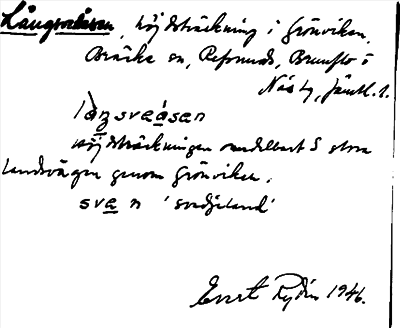 Långsveåsen, höjdsträckning i Grönviken,
Bräcke sn, Refsunds, Brunflo o
Näs tg, Jämtl. l.
laŋsveåsen
Höjdsträckningen omedelbart S stora
landsvägen genom Grönviken.
svea n 'svedjeland'
Evert Rydén 1946.